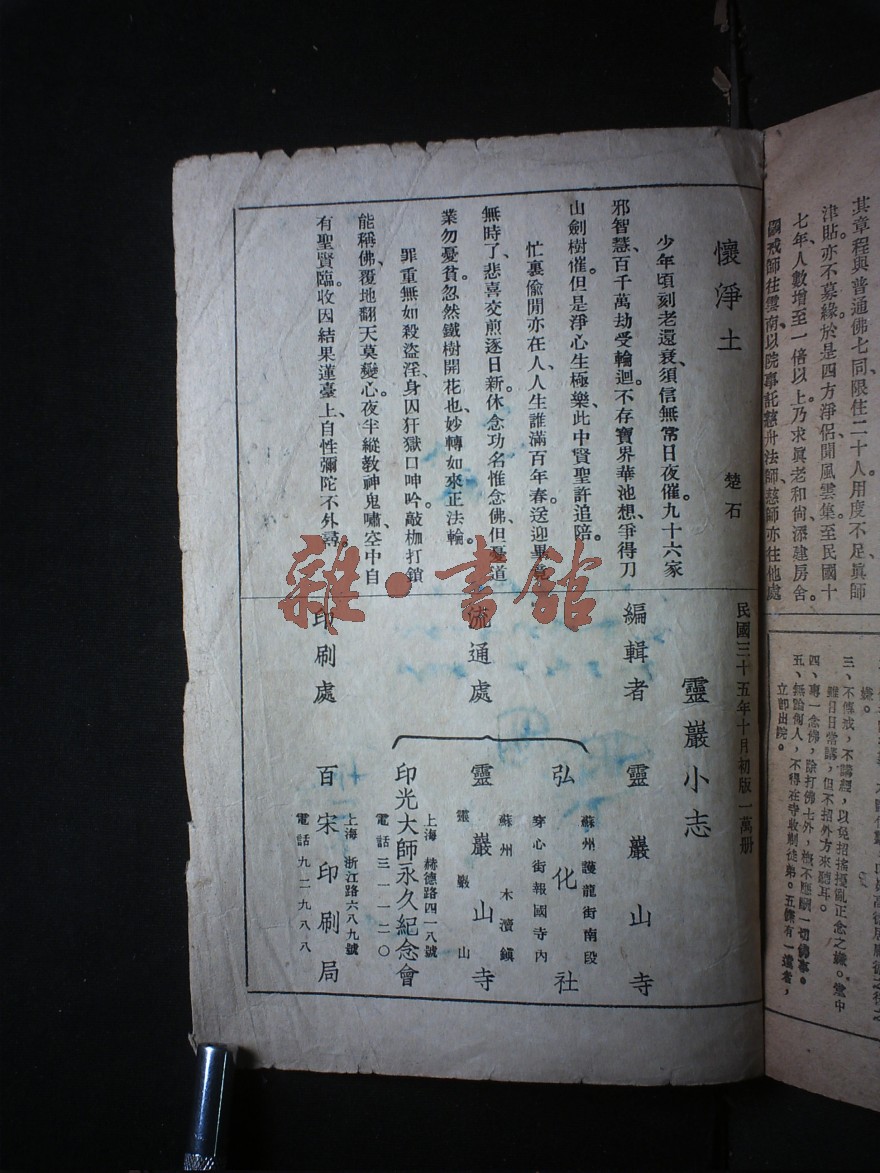 其章程與普通佛七同、限住二十人、用度不足、眞師
津貼、亦不募緣。於是四方淨侶、聞風雲集。至民國十
七年、人數增至一倍以上。乃求眞老和尙添建房舍。
戒師往雲南、以院事託慈舟法師。慈師亦往他處
三、不傳戒，不講經，以免招搖擾亂正念之嫌。堂中
雖日日常講，但不招外方來聽耳。
四、專一念佛，除打佛七外，槪不應酬一切佛事。
五、無論何人，不得在寺收剃徒弟。五條有一違者，
立卽出院。
懷淨土
楚石
少年頃刻老還衰、須信無常日夜催。九十六家
邪智慧、百千萬劫受輪迴。不存寶界華池想、爭得刀
山劍樹催。但是淨心生極樂、此中賢聖許追陪。
忙裏偸閒亦在人、人生誰滿百年春。送迎畢竟
無時了、悲喜交煎逐日新。休念功名惟念佛、但憂道
業勿憂貧。忽然鐵樹開花也、妙轉如來正法輪。
罪重無如殺盜淫、身囚犴獄口呻吟。敲枷打鎖
能稱佛、覆地翻天莫變心。夜半縱敎神鬼嘯、空中自
有聖賢臨。收因結果蓮臺上、自性彌陀不外尋。
民國三十五年十月初版一萬册
靈巖小志
編輯者 靈巖山寺
流通處
蘇州護龍街南段
弘化社
穿心街報國寺內
蘇州木瀆鎭
靈巖山寺
靈巖山
上海赫德路四一八號
印光大師永久紀念會
電話三一一二〇
印刷處
上海浙江路六八九號
百宋印刷局
電話九二九八八
雜·書館